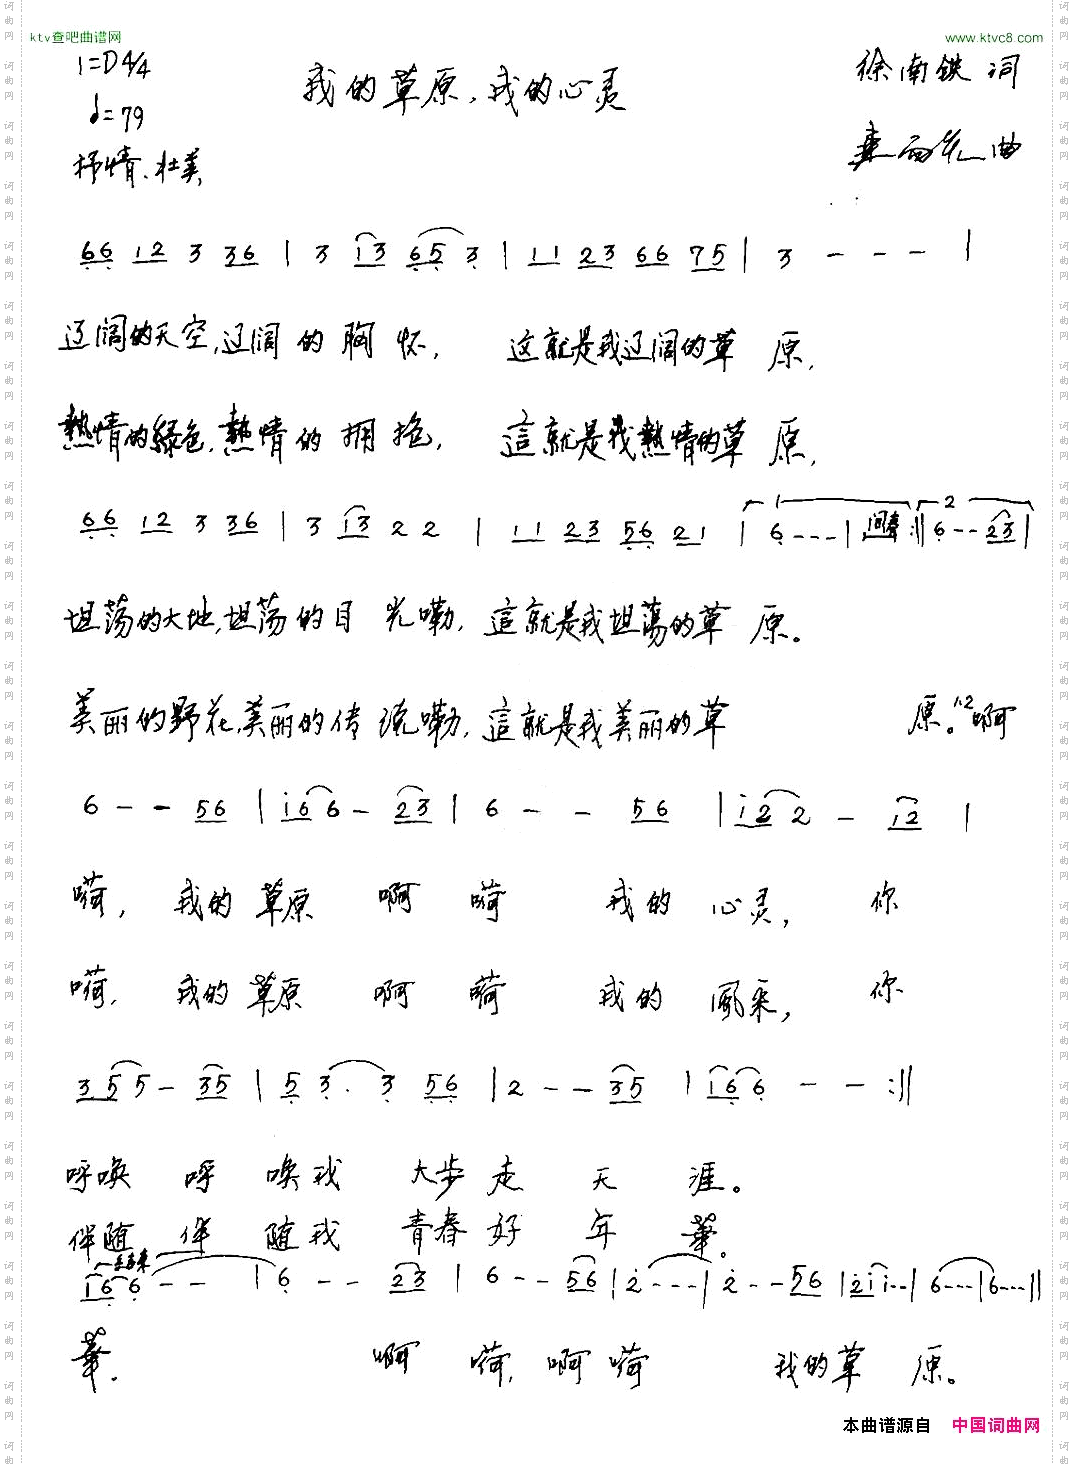 ktv查吧曲谱网
www.ktvc8.com
1=D4/4
♩=79
抒情、壮美
我的草原,我的心灵
徐南铁 词
曲
66 12 3 36 | 3 i3 65 3 | 11 23 66 75 | 3 - - - |
辽阔的天空,辽阔的胸怀, 这就是我辽阔的草原,
热情的绿色,热情的拥抱, 這就是我热情的草原,
66 12 3 36 | 3 i3 2 2 | 11 23 56 21 | 6 - - - | 间奏 :|| 6 - - 23 |
坦荡的大地,坦荡的目光嘞, 這就是我坦荡的草原。
美丽的野花,美丽的传说嘞, 這就是我美丽的草 原。1.2啊
6 - - 56 | i6 6 - 23 | 6 - - 56 | i2 2 - i2 |
嗬, 我的草原 啊 嗬 我的 心灵, 你
嗬, 我的草原 啊 嗬 我的 風采, 你
3 5 5 - 35 | 5 3 . 3 56 | 2 - - 35 | i6 6 - - :||
呼唤 呼 唤我 大步走 天 涯。
伴随 伴 随我 青春好 年 華。
i6 6 - - | 6 - - 23 | 6 - - 56 | 2 - - - | 2 - - 56 | 2i i - - | 6 - - - | 6 - - - ||
華. 啊 嗬, 啊 嗬 我的草 原。
本曲谱源自 中国词曲网